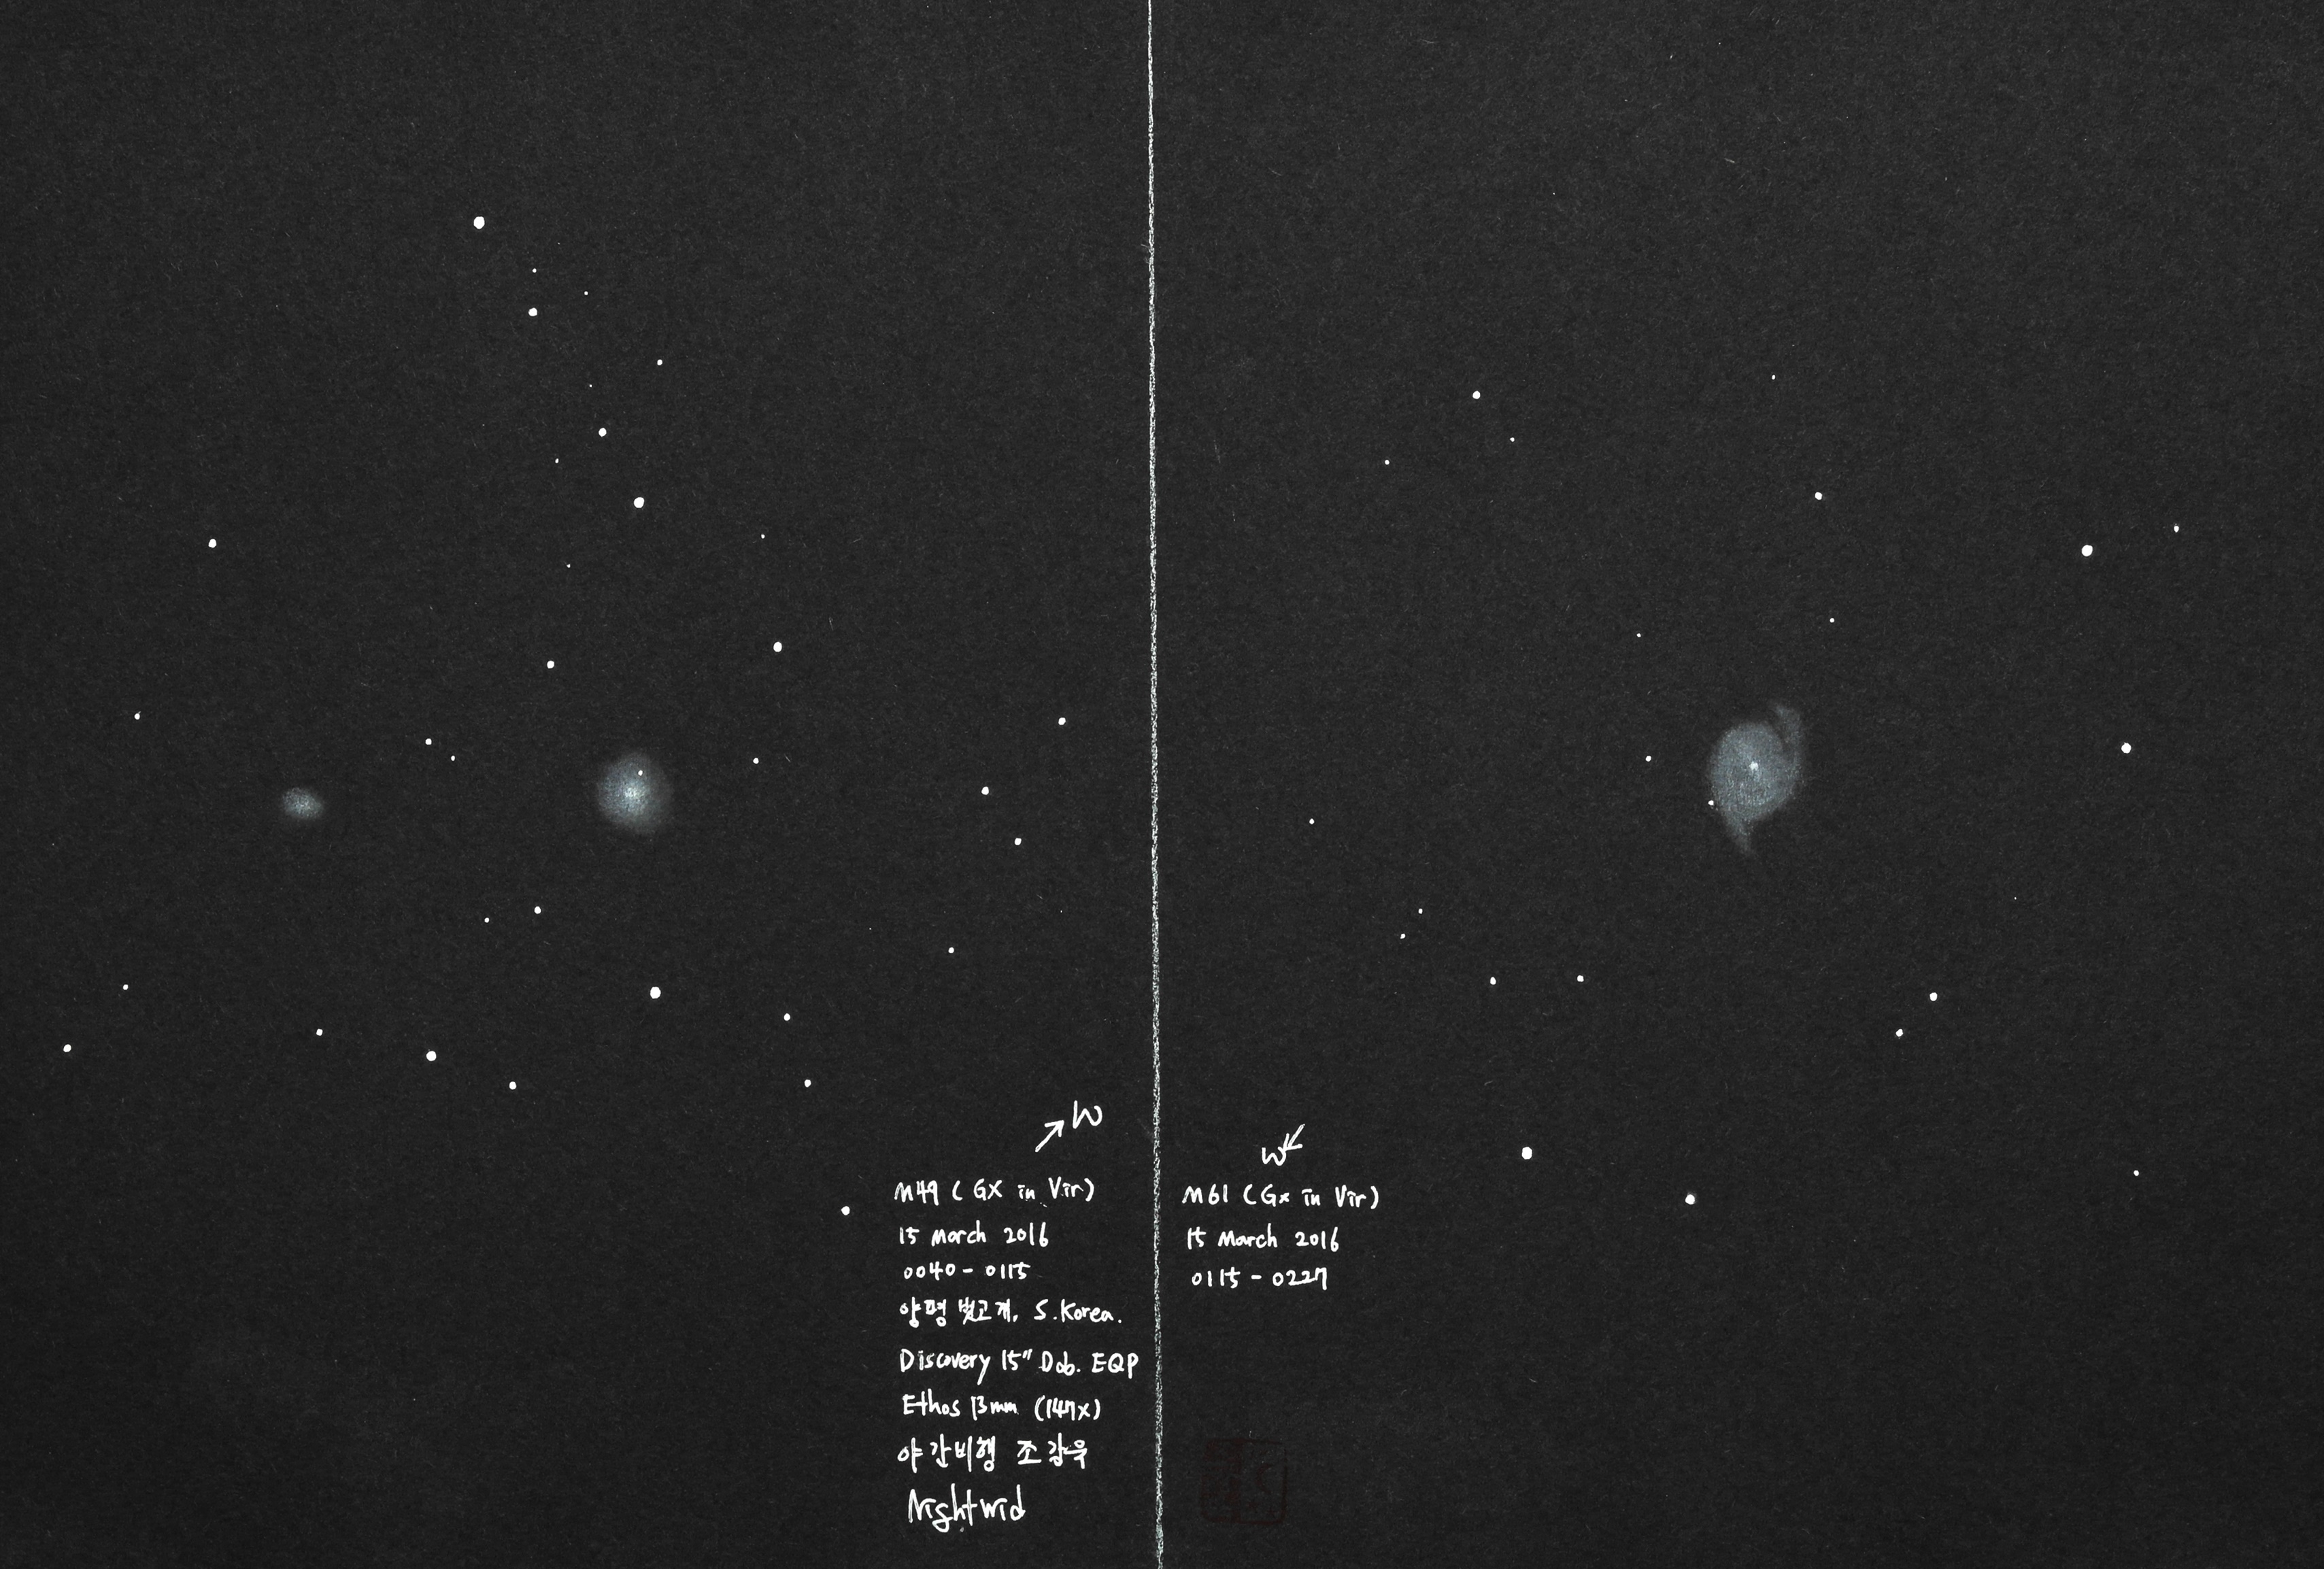 W
M49 (GX in Vir)
15 March 2016
0040 - 0115
양평 벗고개, S.Korea.
Discovery 15" Dob. EQP
Ethos 13mm (147x)
야간비행 조강욱
Nightwid
W
M61 (Gx in Vir)
15 March 2016
0115 - 0227